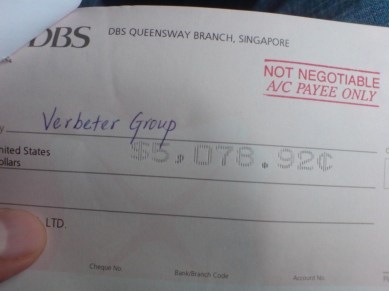 DBS DBS QUEENSWAY BRANCH, SINGAPORE
NOT NEGOTIABLE
A/C PAYEE ONLY
Verbeter Group
United States
Dollars
$5,078.92¢
LTD.
Cheque No.
Bank/Branch Code
Account No.